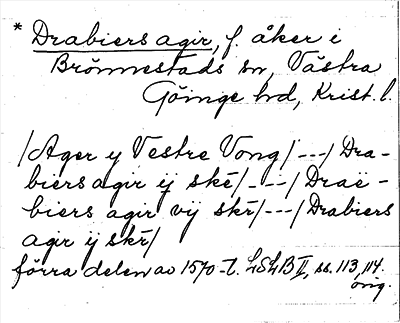 * Drabiers agir, f. åker i
Brönnestads sn, Västra
Göinge hd, Krist. l.
/Ager y Vestre Vong/---/Dra-
biers agir ÿ skē/---/Draē-
biers agir vÿ skr̄/---/Drabiers
agir ÿ skr̄/
förra delen av 1570-t. LSLB II, ss. 113, 114.
orig.